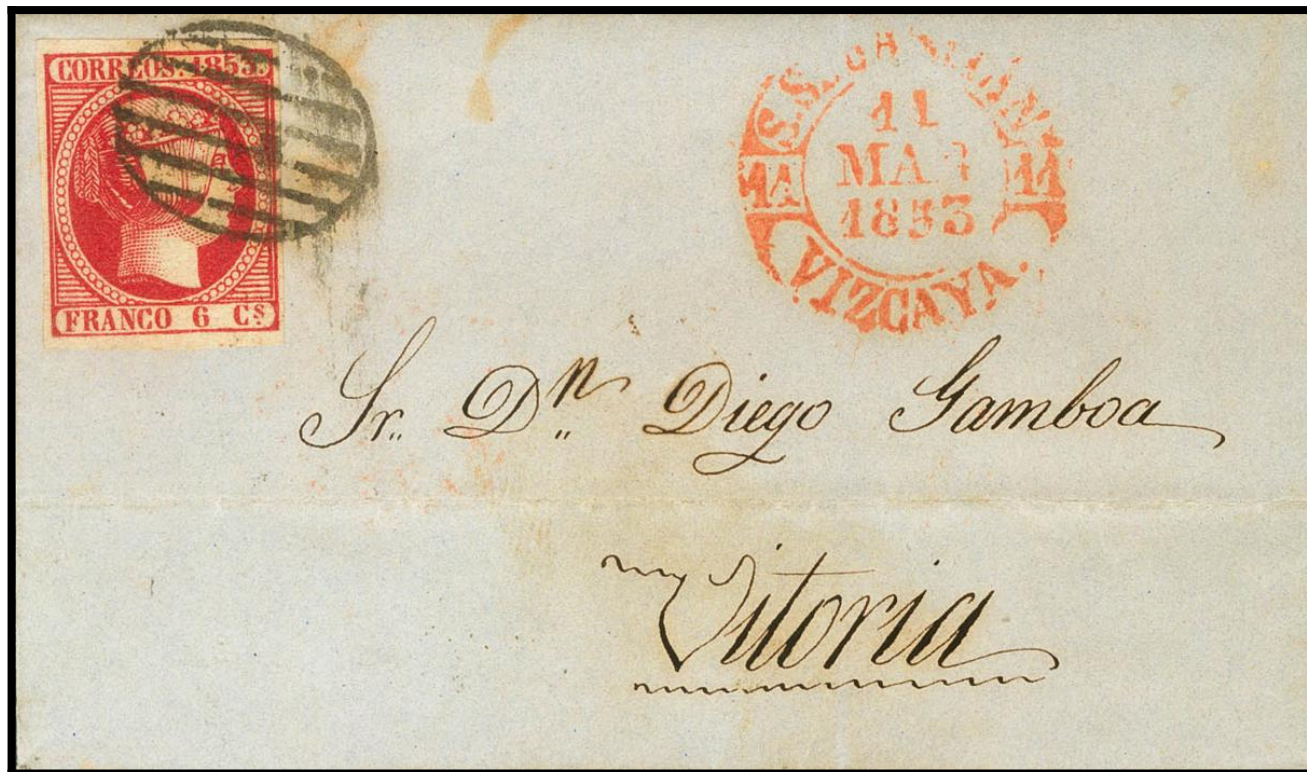 CORREOS. 1853.
FRANCO 6 Cs
S.S.
11
1853
11 11
VIZCAYA.
Sr. Dn Diego Gamboa
Vitoria